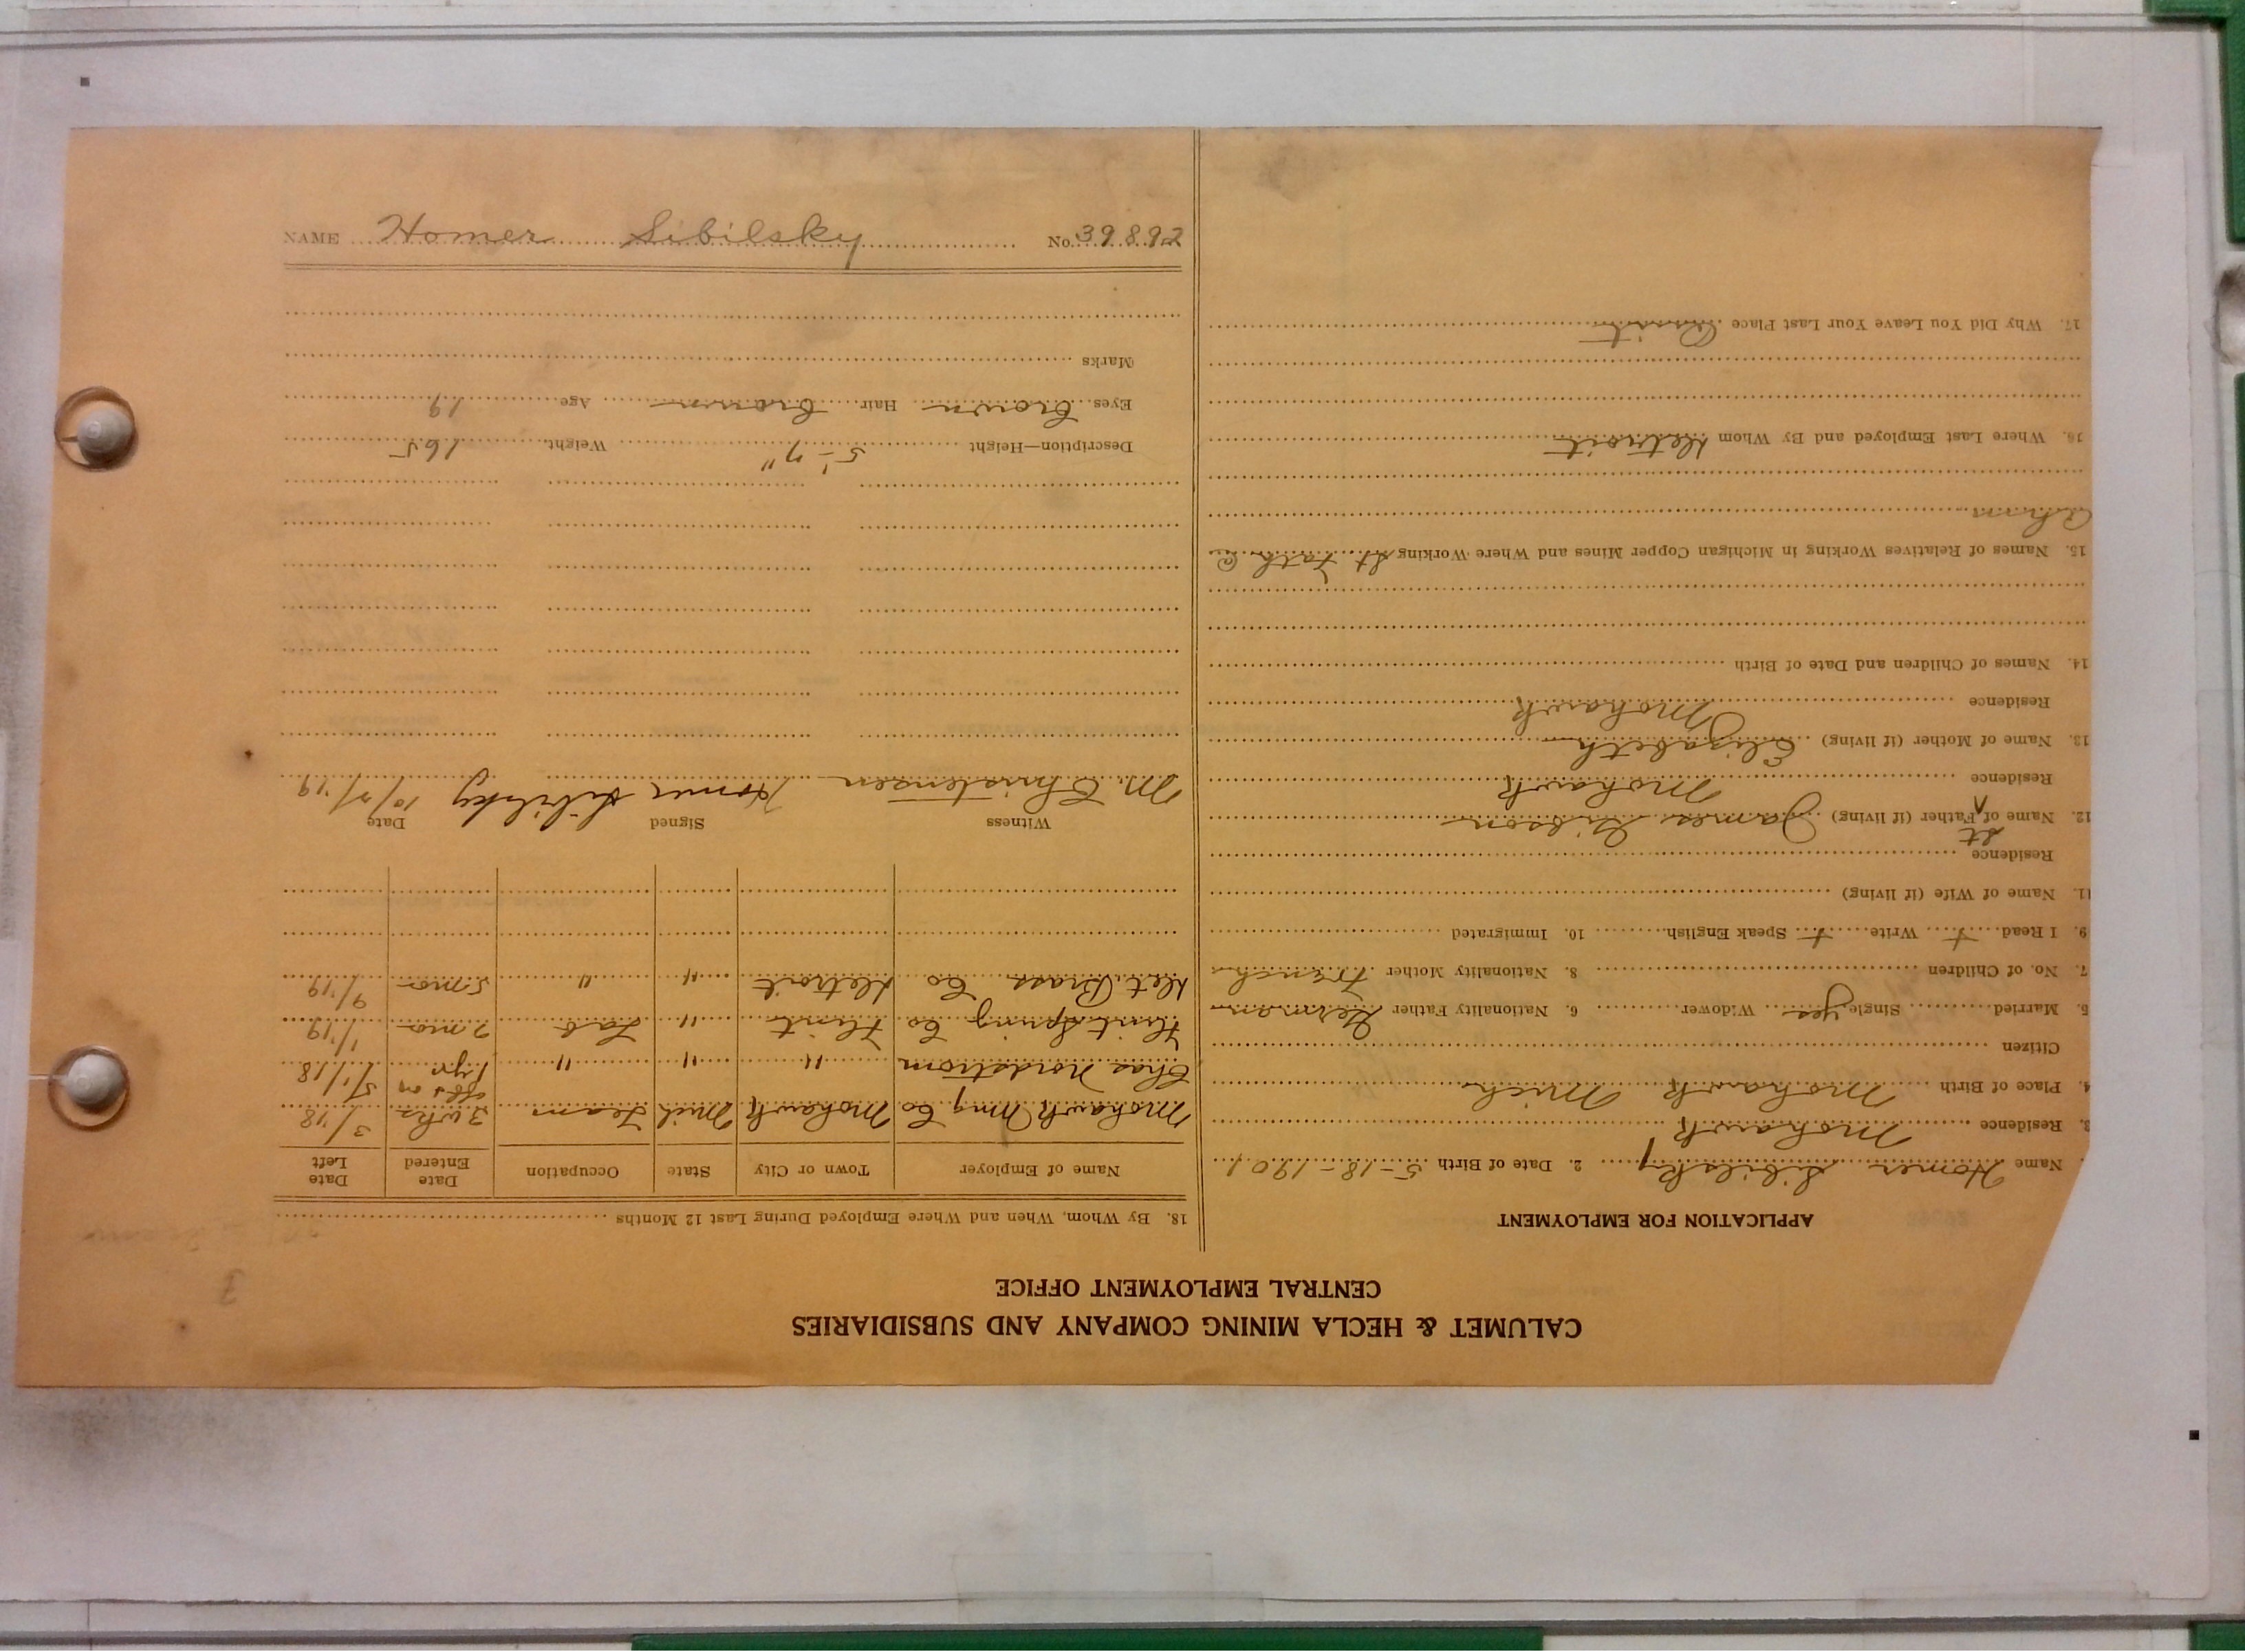 CALUMET & HECLA MINING COMPANY AND SUBSIDIARIES
CENTRAL EMPLOYMENT OFFICE
APPLICATION FOR EMPLOYMENT
Name Homer Sibilsky 2. Date of Birth 5-18-1901
3. Residence Mohawk
4. Place of Birth Mohawk Mich
Citizen
5. Married Single yes Widower 6. Nationality Father German
7. No. of Children 8. Nationality Mother French
9. I Read + Write + Speak English 10. Immigrated
11. Name of Wife (if living)
Residence
12. Name of St Father (if living) James Gibson
Residence Mohawk
13. Name of Mother (if living) Elizabeth
Residence Mohawk
14. Names of Children and Date of Birth
15. Names of Relatives Working in Michigan Copper Mines and Where Working St Fath @
16. Where Last Employed and By Whom Detroit
17. Why Did You Leave Your Last Place Quit
18. By Whom, When and Where Employed During Last 12 Months
Name of Employer Town or City State Occupation Date Entered Date Left
Mohawk Mng Co Mohawk Mich Team 2 wks 3/18
Chas Nordstrom " " " off & on 1 yr 5/1/18
Flint Spring Co Flint " Lab 2 mo 1/19
Det. Brass Co Detroit " " 5 mos 9/19
Witness Signed Date
M. Christensen Homer Sibilsky
Description—Height 5'-7" Weight 165
Eyes Brown Hair Brown Age 19
Marks
NAME Homer Sibilsky No. 39892